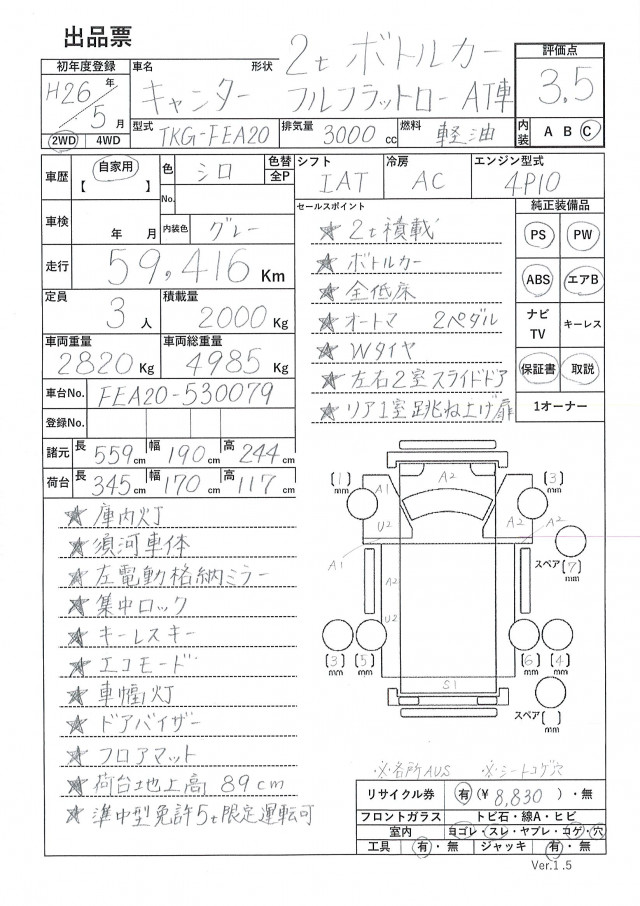 出品票
初年度登録
H26年
5月
2WD 4WD
車名 キャンター
形状 2t ボトルカー
フルフラットロー AT車
評価点
3.5
型式 TKG-FEA20
排気量 3000 cc
燃料 軽油
内装 A B C
車歴 自家用
【 】
色 シロ
No.
色替
全P
シフト IAT
冷房 AC
エンジン型式 4P10
車検 年 月
内装色 グレー
走行 59,416 Km
定員 3人
積載量 2000 Kg
車両重量 2820 Kg
車両総重量 4985 Kg
車台No. FEA20-530079
登録No.
諸元 長 559cm 幅 190cm 高 244cm
荷台 長 345cm 幅 170cm 高 117cm
セールスポイント
★ 2t積載
★ ボトルカー
★ 全低床
★ オートマ 2ペダル
★ Wタイヤ
★ 左右2室スライドドア
★ リア1室跳ね上げ扉
純正装備品
PS PW
ABS エアB
ナビ
TV
キーレス
保証書 取説
1オーナー
★ 庫内灯
★ 須河車体
★ 左電動格納ミラー
★ 集中ロック
★ キーレスキー
★ エコモード
★ 車幅灯
★ ドアバイザー
★ フロアマット
★ 荷台地上高 89cm
★ 準中型免許5t限定運転可
〔1〕
mm
A1
A2
〔3〕
mm
U2
A2
A2
A1
スペア〔7〕
mm
A2
U2
〔3〕
mm
〔5〕
mm
〔6〕
mm
〔4〕
mm
S1
スペア〔 〕
mm
※各所AUS ※シートコゲ穴
リサイクル券 有(¥ 8,830 )・無
フロントガラス トビ石・線A・ヒビ
室内 ヨゴレ・スレ・ヤブレ・コゲ・穴
工具 有・無 ジャッキ 有・無
Ver.1.5